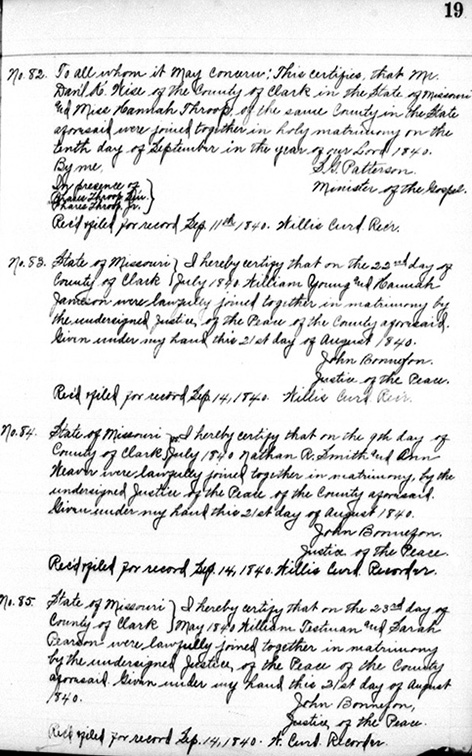 19
No. 82. To all whom it may concern; This certifies, that Mr.
Dan'l K. Wise of the County of Clark in the State of Missouri
and Miss Hannah Throop, of the same County in the State
aforesaid were joined together in holy matrimony on the
tenth day of September in the year of our Lord 1840.
By me, S. G. Patterson.
In presence of Minister of the Gospel.
Phares Throop Sen.
Phares Throop Jr. }
Rec'd & filed for record Sep. 11th 1840. Willis Curd Recr.
No. 83. State of Missouri } I hereby certify that on the 22nd day of
County of Clark } July 1840 William Young and Hannah
Jameson were lawfully joined together in matrimony by
the undersigned Justice, of the Peace of the County aforesaid.
Given under my hand this 21st day of August 1840.
John Bonnefon.
Justice of the Peace.
Rec'd & filed for record Sep. 14, 1840. Willis Curd Recr.
No. 84. State of Missouri } I hereby certify that on the 9th day of
County of Clark } July 1840 Nathan R. Smith and Ann
Weaver were lawfully joined together in matrimony, by the
undersigned Justice of the Peace of the County aforesaid.
Given under my hand this 21st day of August 1840.
John Bonnefon.
Justice of the Peace.
Rec'd & filed for record Sep. 14, 1840. Willis Curd Recorder.
No. 85. State of Missouri } I hereby certify that on the 23rd day of
County of Clark } May 1840 William Testman and Sarah
Pearson were lawfully joined together in matrimony
by the undersigned Justice, of the Peace of the County
aforesaid. Given under my hand this 21st day of August
1840. John Bonnefon,
Justice of the Peace.
Rec'd & filed for record Sep. 14, 1840. W. Curd Recorder.